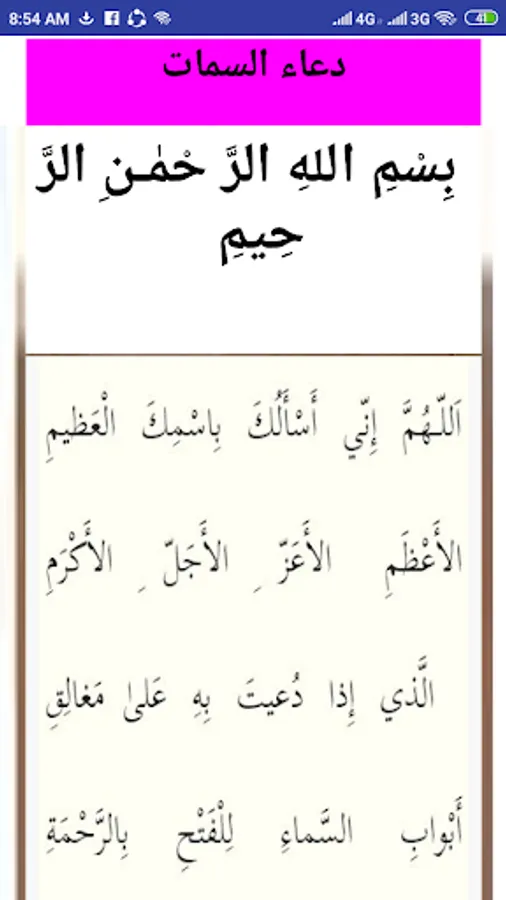 8:54 AM 4G 3G 41
دعاء السمات
بِسْمِ اللهِ الرَّ حْمٰـنِ الرَّ
حِيمِ
اَللّـهُمَّ إِنّي أَسْأَلُكَ بِاسْمِكَ الْعَظيمِ
الأَعْظَمِ الأَعَزّ ِ الأَجَلّ ِ الأَكْرَمِ
الَّذي إِذا دُعيتَ بِهِ عَلىٰ مَغالِقِ
أَبْوابِ السَّماءِ لِلْفَتْحِ بِالرَّحْمَةِ